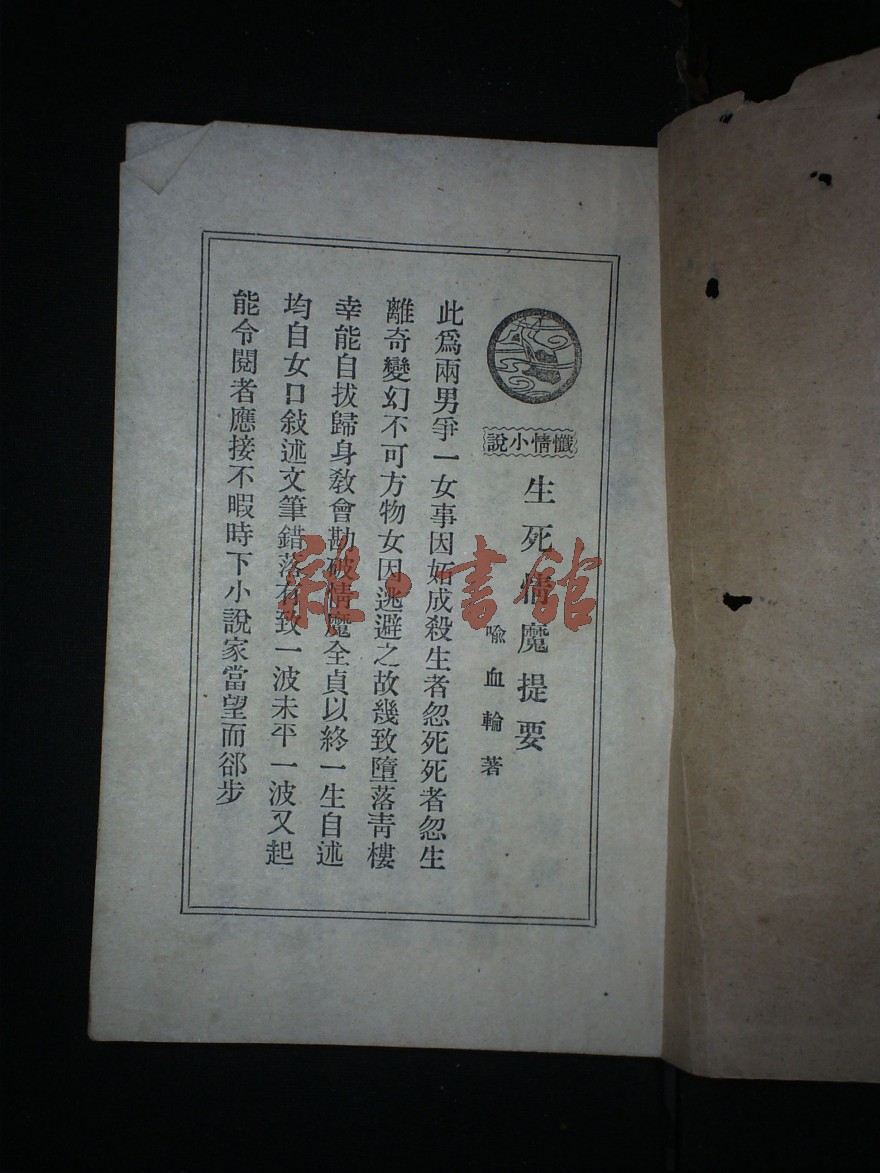 懺情小說
生死情魔提要
喩血輪著
此爲兩男爭一女事因妬成殺生者忽死死者忽生
離奇變幻不可方物女因逃避之故幾致墮落靑樓
幸能自拔歸身敎會勘破情魔全貞以終一生自述
均自女口敍述文筆錯落有致一波未平一波又起
能令閱者應接不暇時下小說家當望而郤步
雜·書館